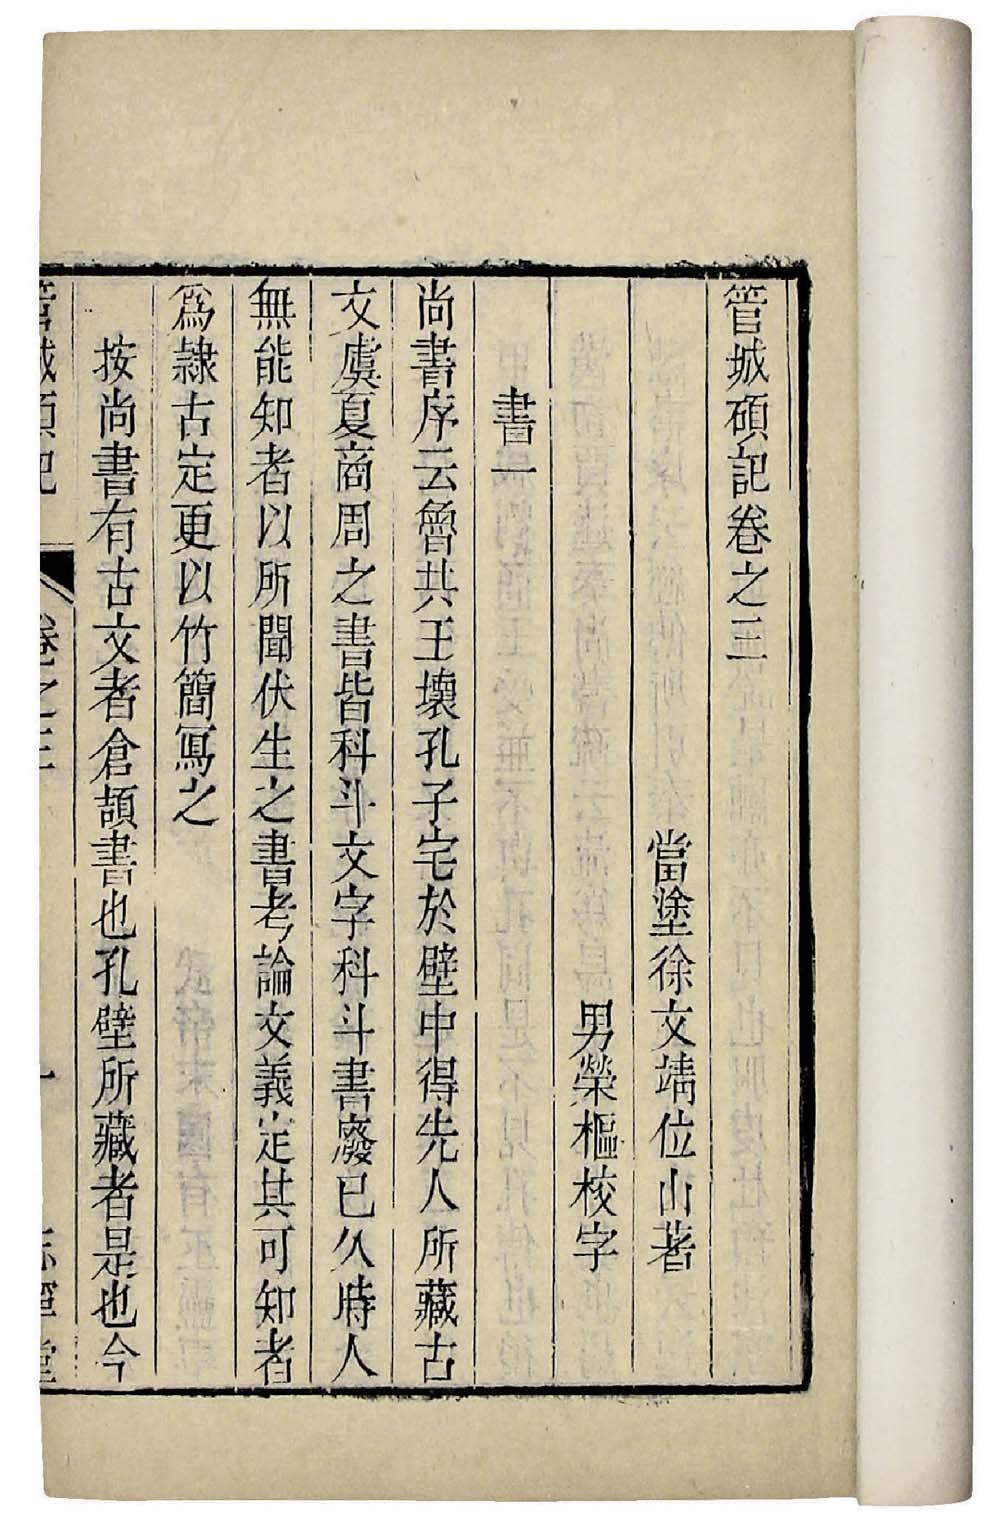 管城碩記卷之三
當塗徐文靖位山著
男榮樞校字
書一
尚書序云魯共王壞孔子宅於壁中得先人所藏古
文虞夏商周之書皆科斗文字科斗書廢已久時人
無能知者以所聞伏生之書考論文義定其可知者
爲隷古定更以竹簡寫之
按尚書有古文者倉頡書也孔壁所藏者是也今
管城碩記 卷之三 一 志寧堂